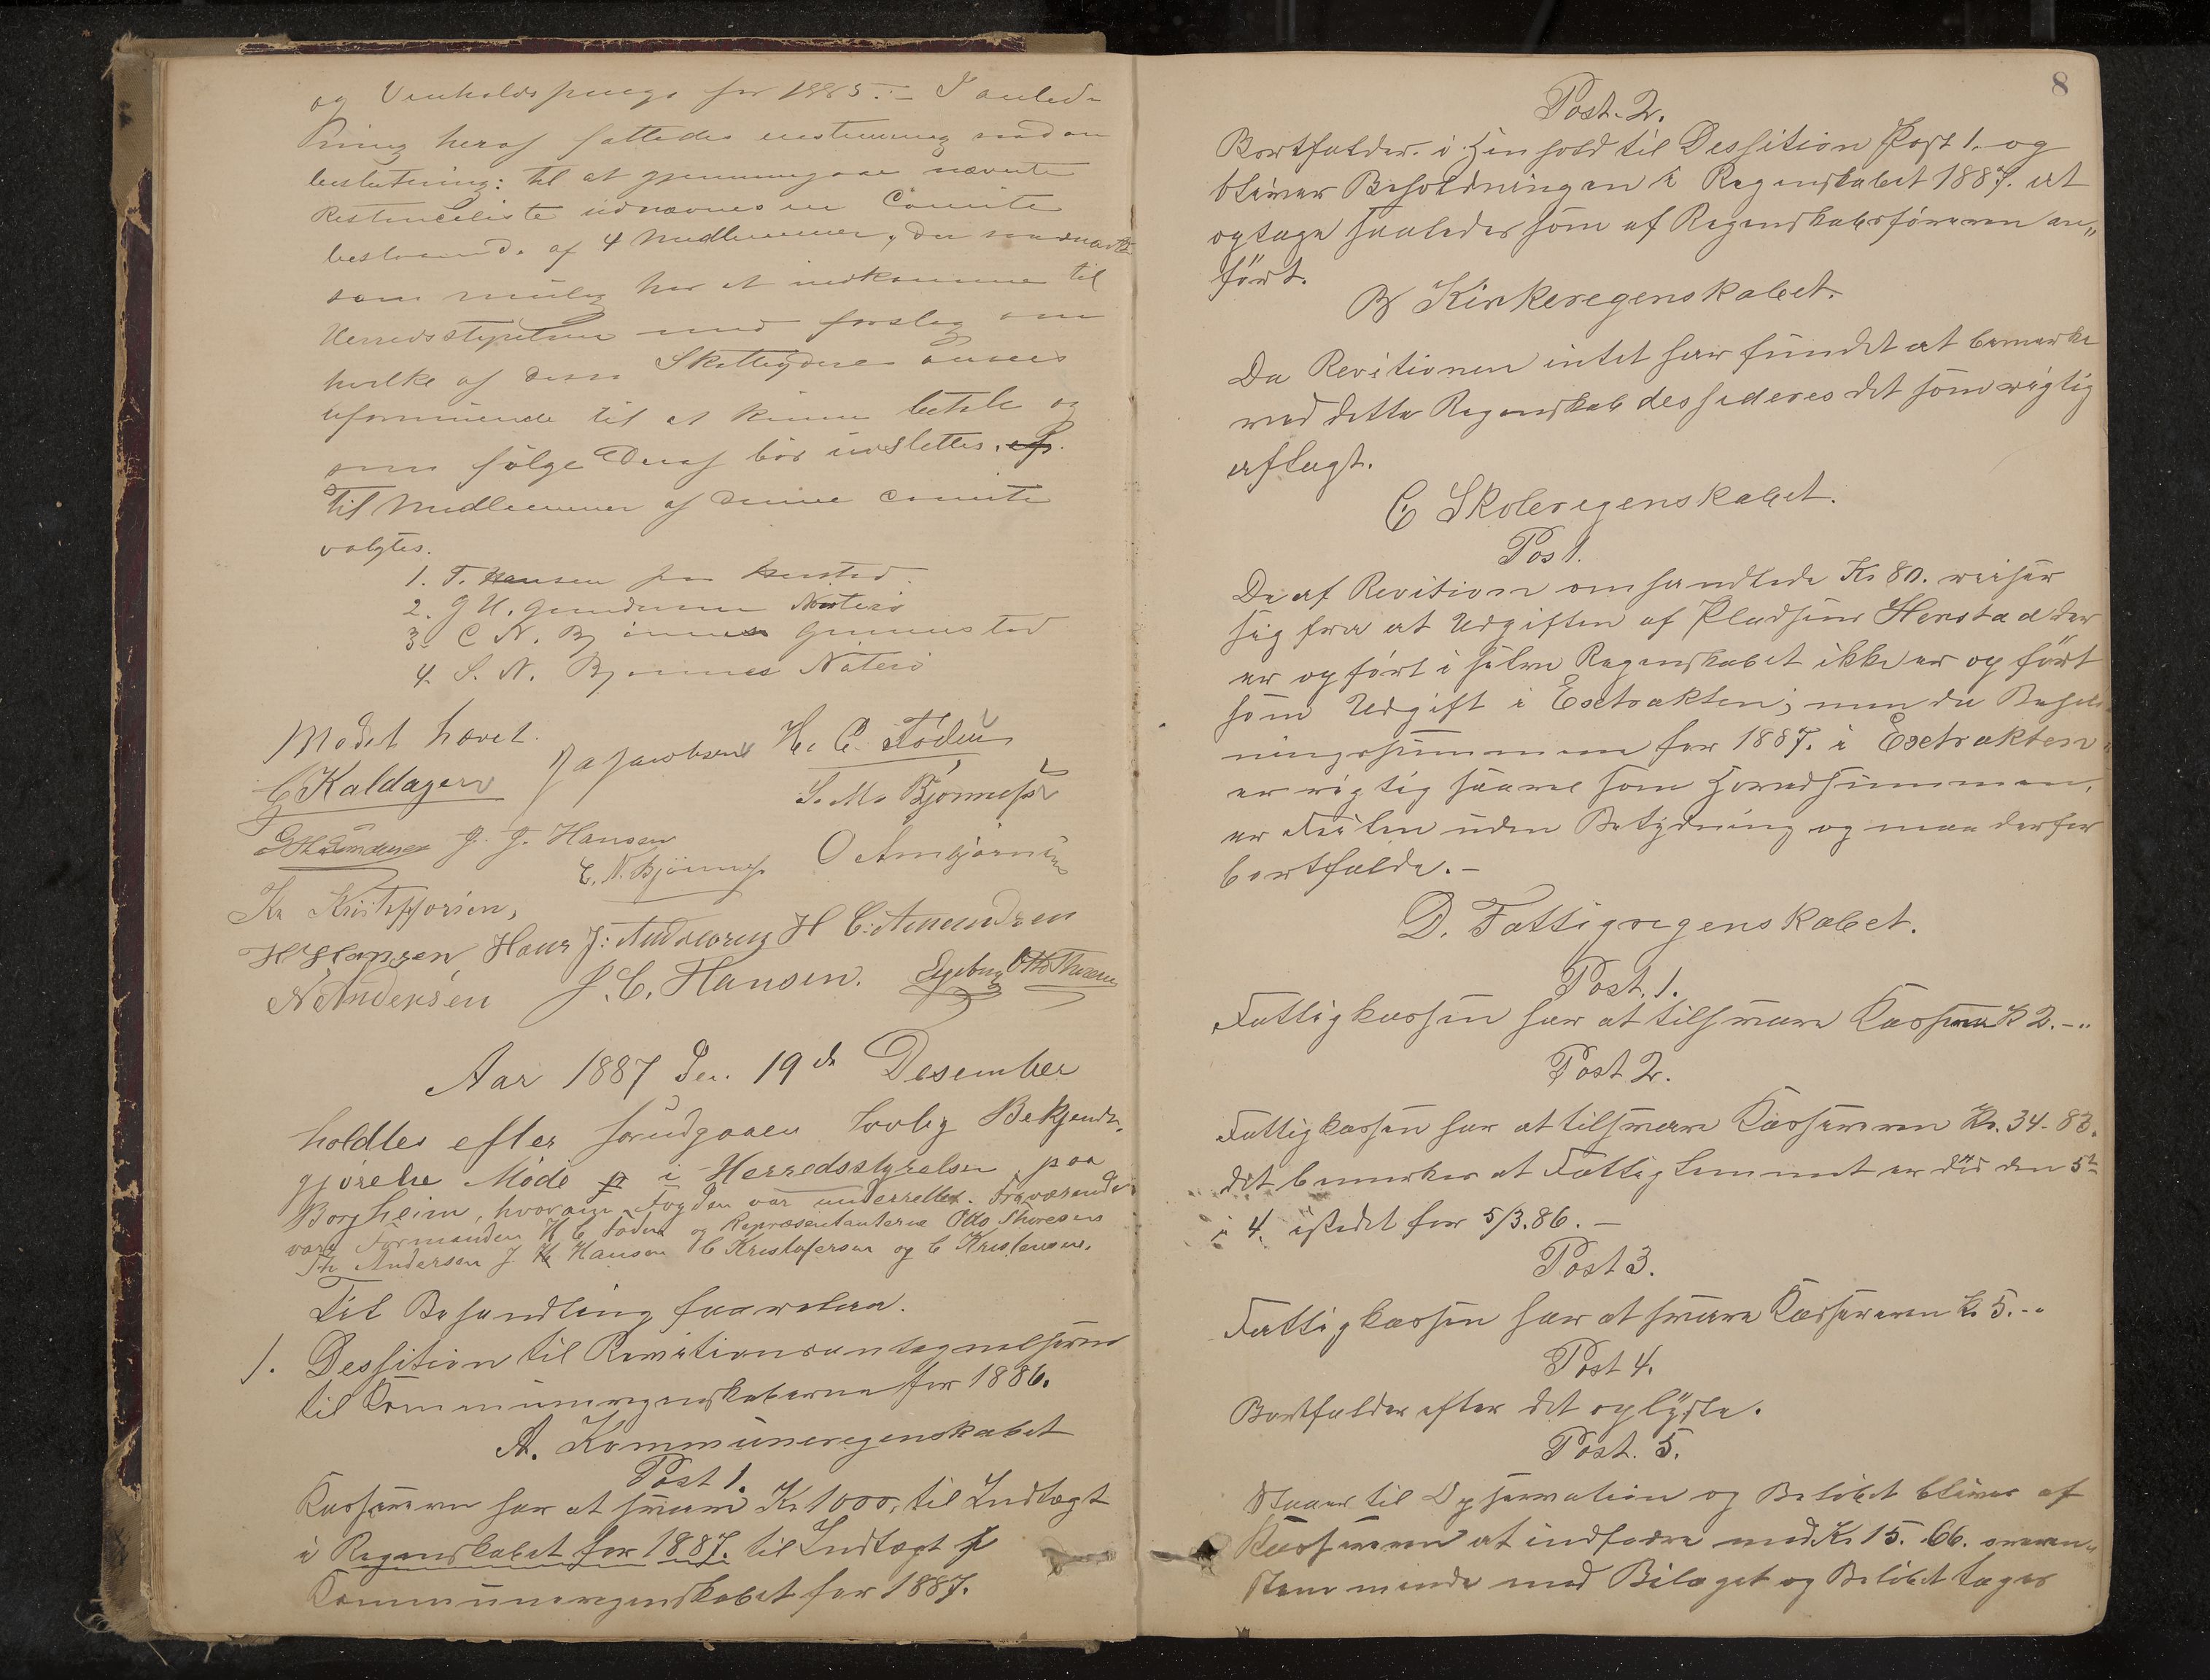 og Venholdspenge for 1885.- I anled-
ning heraf fattedes enstemmig saadan
beslutning: til at gjennemgaae nævnte
Restanceliste udnævnes en Comite
bestaaende af 4 Medlemmer, der snarest
som mulig har at indkomme til
Herredsstyrelsen med forslag om
hvilke af disse Skatteydere ansees
uformuende til at kunne betale og
som følge deraf bør udslettes.
Til Medlemmer af denne Comite
valgtes.
1. T. Hansen
2. G H. Gundersen Nøterø
3. C N. Bjönnes Gunnestad
4. S. N. Bjønnes Nøterö
Mødet hævet.
C Kaldager J A Jacobsen H. C. Foden
S. M. Bjønness
G H Gundersen J. J. Hansen
C. N. Bjönness O Arnbjørnsen
Kr Kristoffersen,
H Hansen Hans J: Andersen H C: Amundsen
N Andersen J. C. Hansen. Otto Thoresen
Aar 1887 den 19de Desember
holdtes efter forudgaaen lovlig Bekjendt-
gjørelse Møde i Herredsstyrelsen paa
Borgheim, hvorom Fogden var underrettet. Fraværende
vare Formanden H C Foden og Repræsentanterne Otto Thoresen
Andersen J. H Hansen C Kristofersen og C Kristensen.
Til Behandling forevaar.
1. Dessition til Revitionsantegnelserne
til Kommuneregnskaberne for 1886.
A. Kommuneregenskabet
Post 1.
Kassereren har at svare Kr 1000, til Indtægt
i Regenskabet for 1887. til Indtægt
Kommuneregenskabet for 1887.
8
Post. 2.
Bortfalder i Henhold til Dessition Post 1. og
bliver Beholdningen i Regenskabet 1887. at
optage saaledes som af Regenskabsföreren an„
fört.
B Kirkeregenskabet.
Da Revitionen intet har fundet at bemærke
ved dette Regenskab dessideres det som rigtig
aflagt.
C Skoleregenskabet.
Post 1.
De af Revition omhandlede Kr 80. viser
sig fra at Udgiften af Pladsens Herstad der
er opfört i selve Regenskabet ikke er opfört
som Udgift i Exstrakten; men da Behold-
ningssummen for 1887. i Exstrakten
er rigtig saavel som Hovedsummen,
er Feilen uden Betydning og maa derfor
bortfalde.-
D. Fattigregenskabet.
Post. 1.
Fattigkassen har at tilsvare Kasseren K 2.-„
Post 2.
Fattigkassen har at tilsvare Kassereren Kr. 34-83.
det bemerkes at Fattiglemmet er död den 5te
i 4. istedet for 5/3.86.-
Post 3.
Fattigkassen har at svare Kassereren Kr 5.-„
Post 4.
Bortfalder efter det oplyste.
Post. 5.
Staaer til Opservation og Belöbet bliver af
Kassereren at indfodre med Kr 15. 66. overen„
stemmende med Bilaget og Belöbet tages